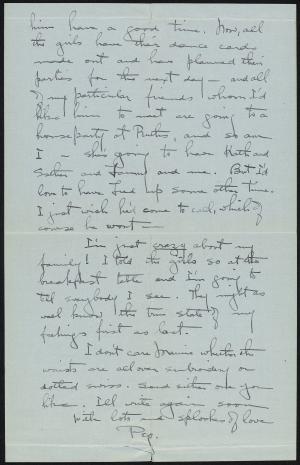 him have a good time. Now, all
the girls have their dance cards
made out and have planned their
parties for the next day — and all
of my particular friends whom I'd
like him to meet are going to a
houseparty at Ruth's, and so am
I — she's going to have Kath and
Esther and and me. But I'd
love to have up some other time.
I just wish he'd come to call, which of
course he won't —
I'm just crazy about my
family! I told the girls so at the
breakfast table and I'm going to
tell everybody I see. They might as
well know the true state of my
feelings first as last
I don't care whether the
waists are all over embroidery or
dotted swiss. Send either one you
like. I'll write again soon
With lots and splooches of love
Peg.